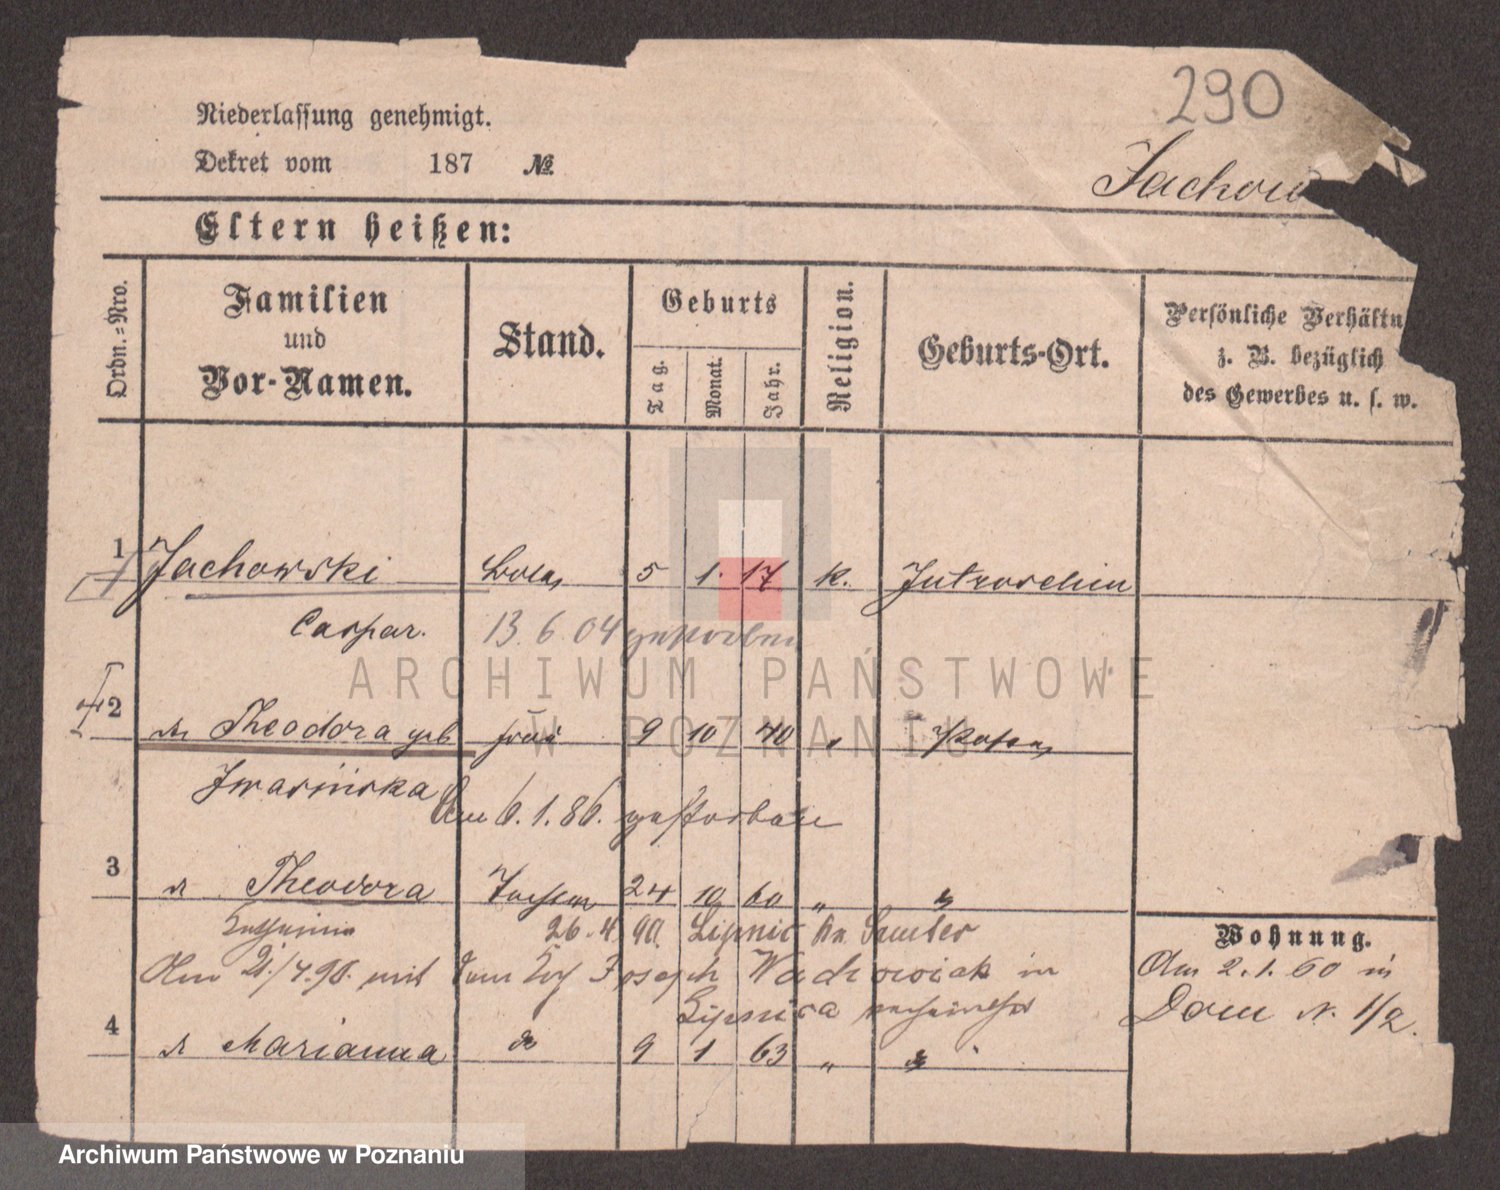 290
Niederlassung genehmigt.
Dekret vom 187 №
Jachow
Eltern heißen:
Ordn.=Nro.
Familien
und
Vor-Namen.
Stand.
Geburts
Tag.
Monat.
Jahr.
Religion.
Geburts-Ort.
Persönliche Verhältn
z. B. bezüglich
des Gewerbes u. s. w.
1 Jachowski 5 1. 17 k. Jutroschin
Caspar. 13. 6. 04 gestorben
ARCHIWUM PAŃSTWOWE
W POZNANIU
2 Theodora geb Frau 9 10 40 " Posen
Iwasińska Am 6. 1. 86. gestorben
3 Theodora 24 10 60 "
26. 4. 90. Lipnic Kr. Samter
Wohnung.
Am 21/4. 90. mit dem Joseph in
Lipnica
Am 2. 1. 60 in
Dom N. 1/2.
4 Marianna 9 1 63 "
Archiwum Państwowe w Poznaniu